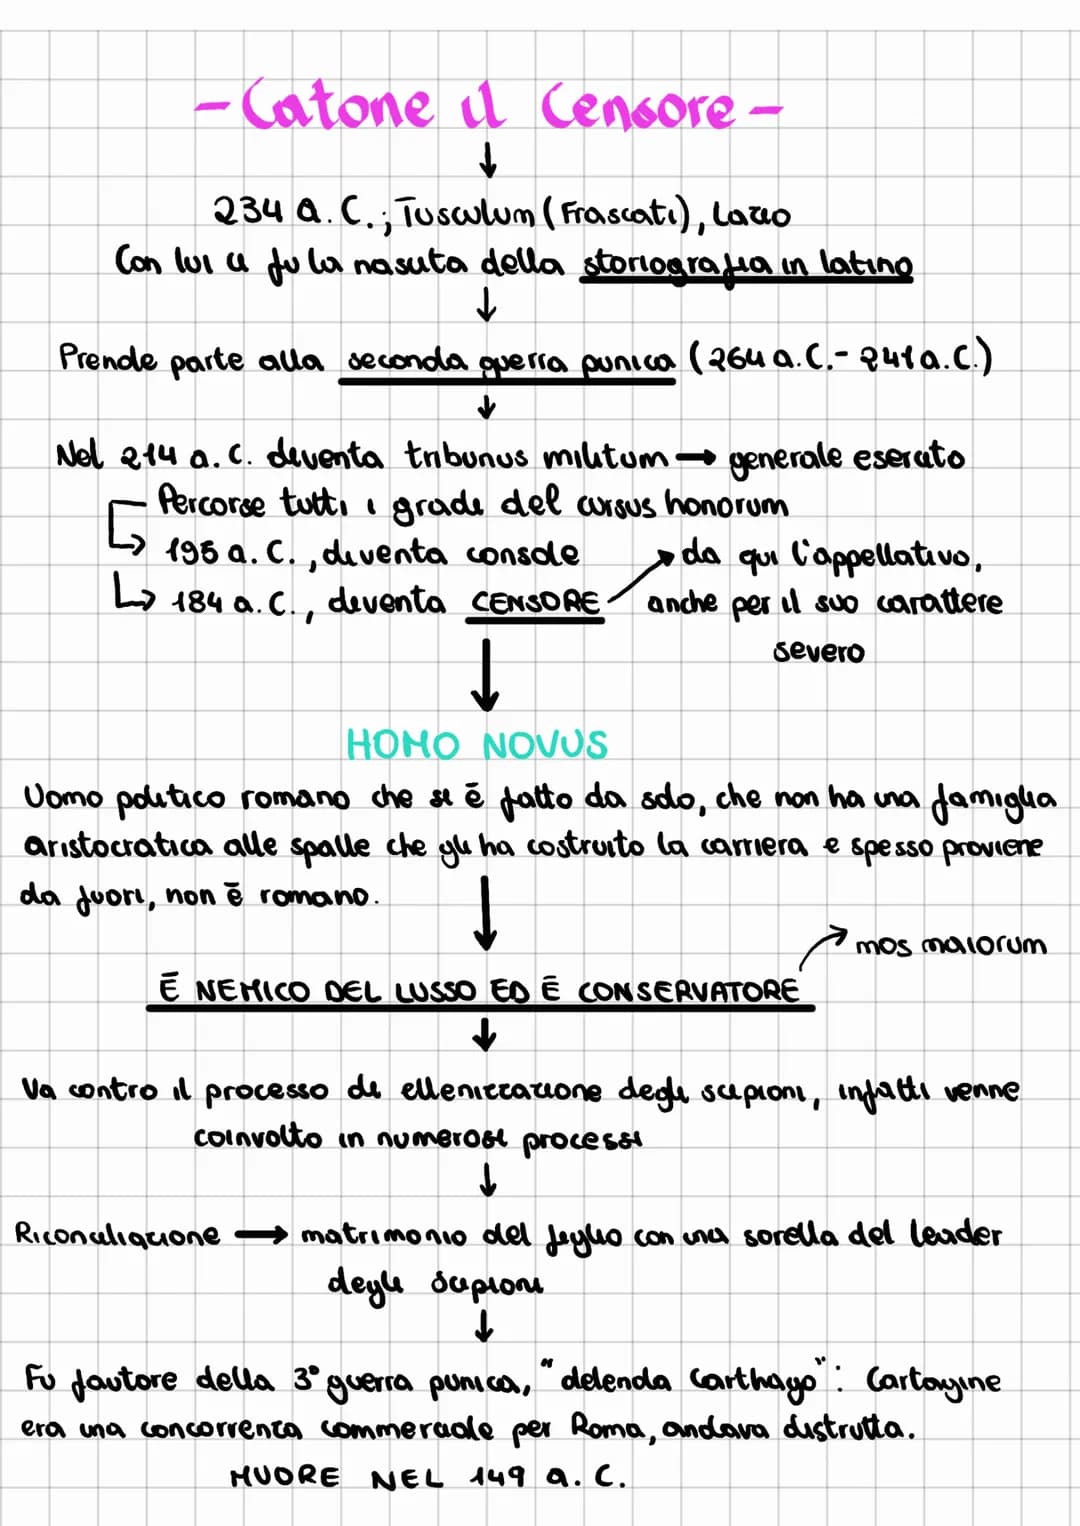 -Catone il Censore-
↓
234 a.C.; Tusculum (Frascati), Lazio
Con lui ci fu la nascita della storiografia in latino
↓
Prende parte alla seconda guerra punica (264 a.C.- 241 a.C.)
↓
Nel 214 a.C. diventa tribunus militum → generale esercito
Percorse tutti i gradi del cursus honorum
↳ 195 a.C., diventa console
da qui l'appellativo,
↳ 184 a.C., diventa CENSORE
anche per il suo carattere
severo
↓
HOMO NOVUS
Uomo politico romano che si è fatto da solo, che non ha una famiglia
aristocratica alle spalle che gli ha costruito la carriera e spesso proviene
da fuori, non è romano.
↓
mos maiorum
È NEMICO DEL LUSSO ED È CONSERVATORE
↓
Va contro il processo di ellenizzazione degli scipioni, infatti venne
coinvolto in numerosi processi
↓
Riconciliazione → matrimonio del figlio con una sorella del leader
degli Scipioni
↓
Fu fautore della 3° guerra punica, "delenda Carthago": Cartagine
era una concorrenta commerciale per Roma, andava distrutta.
MUORE NEL 149 a.C.